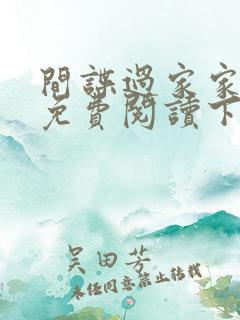 間諜過家家
免費閱讀下
吴田芳
未经同意禁止转载